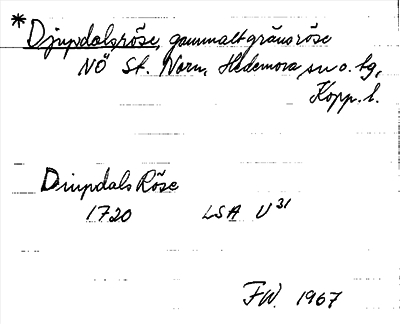 *Djupdalsröse, gammalt gränsröse
NÖ St. Norn, Hedemora sn o. tg,
Kopp. l.
Diupdals Röse
1720 LSA U 31
F.W. 1967